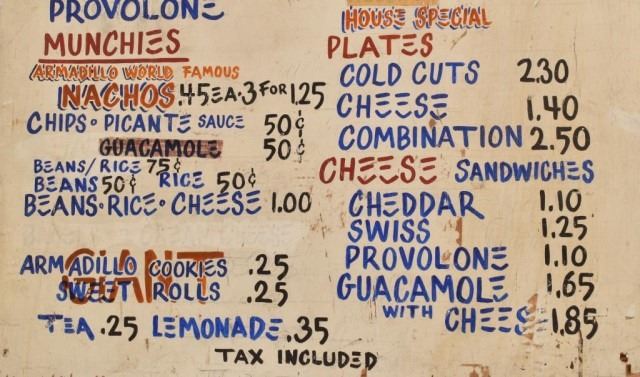 PROVOLONE
MUNCHIES
ARMADILLO WORLD FAMOUS
NACHOS .45 EA. 3 FOR 1.25
CHIPS • PICANTE SAUCE 50¢
GUACAMOLE 50¢
BEANS/RICE 75¢
BEANS 50¢ RICE 50¢
BEANS • RICE • CHEESE 1.00
GIANT
ARMADILLO COOKIES .25
SWEET ROLLS .25
TEA .25 LEMONADE .35
HOUSE SPECIAL
PLATES
COLD CUTS 2.30
CHEESE 1.40
COMBINATION 2.50
CHEESE SANDWICHES
CHEDDAR 1.10
SWISS 1.25
PROVOLONE 1.10
GUACAMOLE 1.65
WITH CHEESE 1.85
TAX INCLUDED